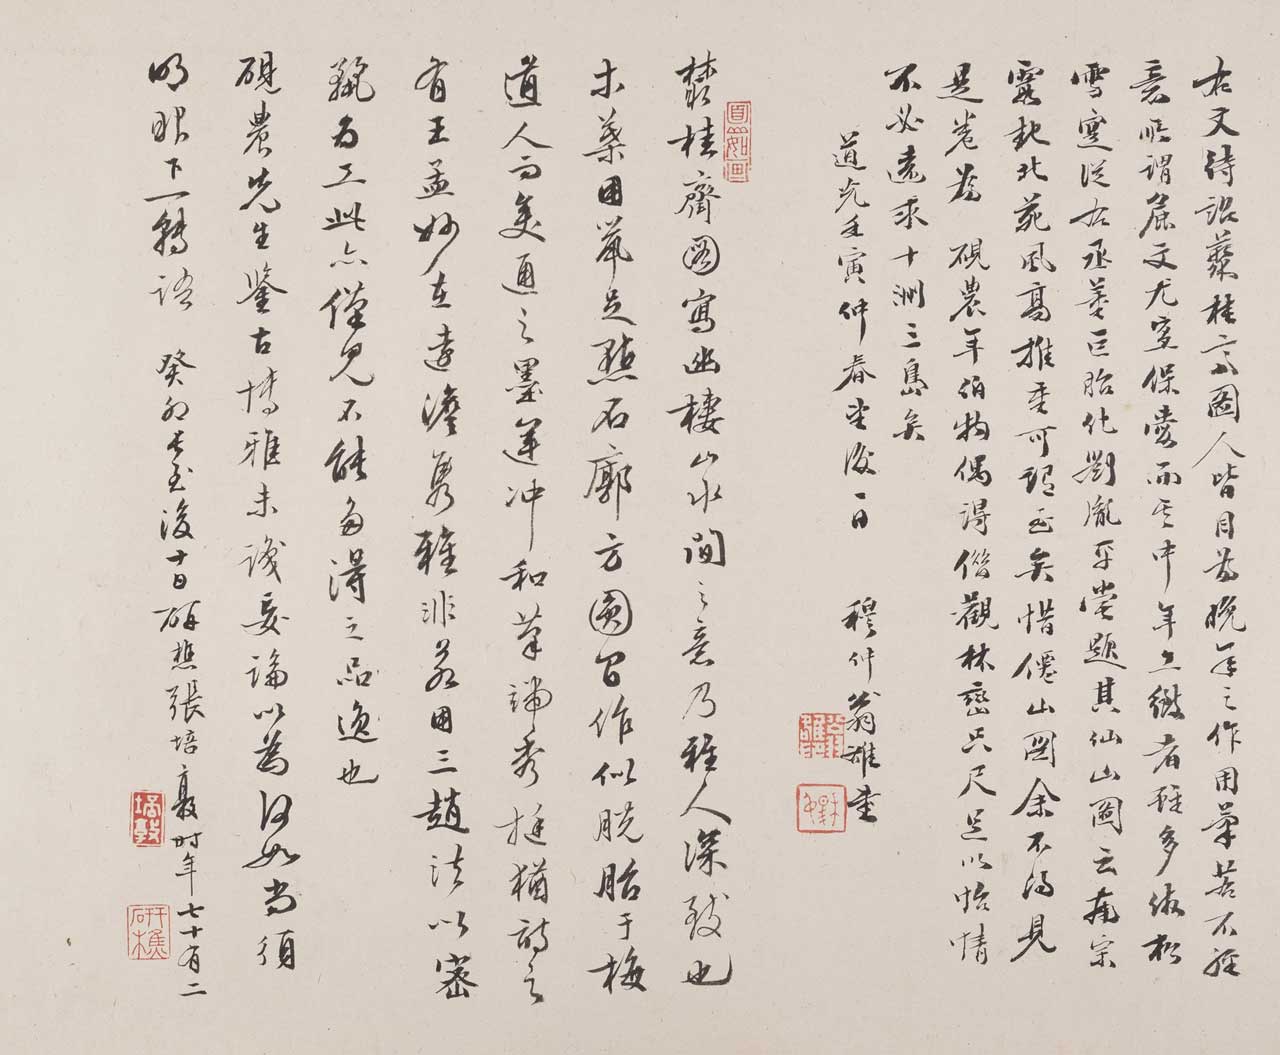 右文待詔藂桂齋圖人皆目為晚年之作用筆若不經
意所謂麤文尤宜保愛而其中年上繳者雖多倣松
雪寔從右丞華巨胎化劉胤平嘗題其仙山圖云南宗
靈託北苑風高推重可謂至矣惜僊山圖余不得見
是卷為 硯農年伯物偶得借觀林巒只尺足以怡情
不必遠求十洲三島矣
道光壬寅仲春望後一日 穆仲翁雄書
藂桂齋圖寫幽棲山水間之意乃雅人深致也
木葉用鼠足點石廓方圓間作似脫胎于梅
道人而兼通之墨運沖和筆端秀挺猶詩之
有王孟妙在遠澹雋雅非若用三趙法以密
緻為工此亦僅見不能多得之品逸也
硯農先生鑒古博雅未識妄論以為何如尚須
明眼下一轉語 癸卯長至後十日研樵張培敦時年七十有二
培敦
研樵